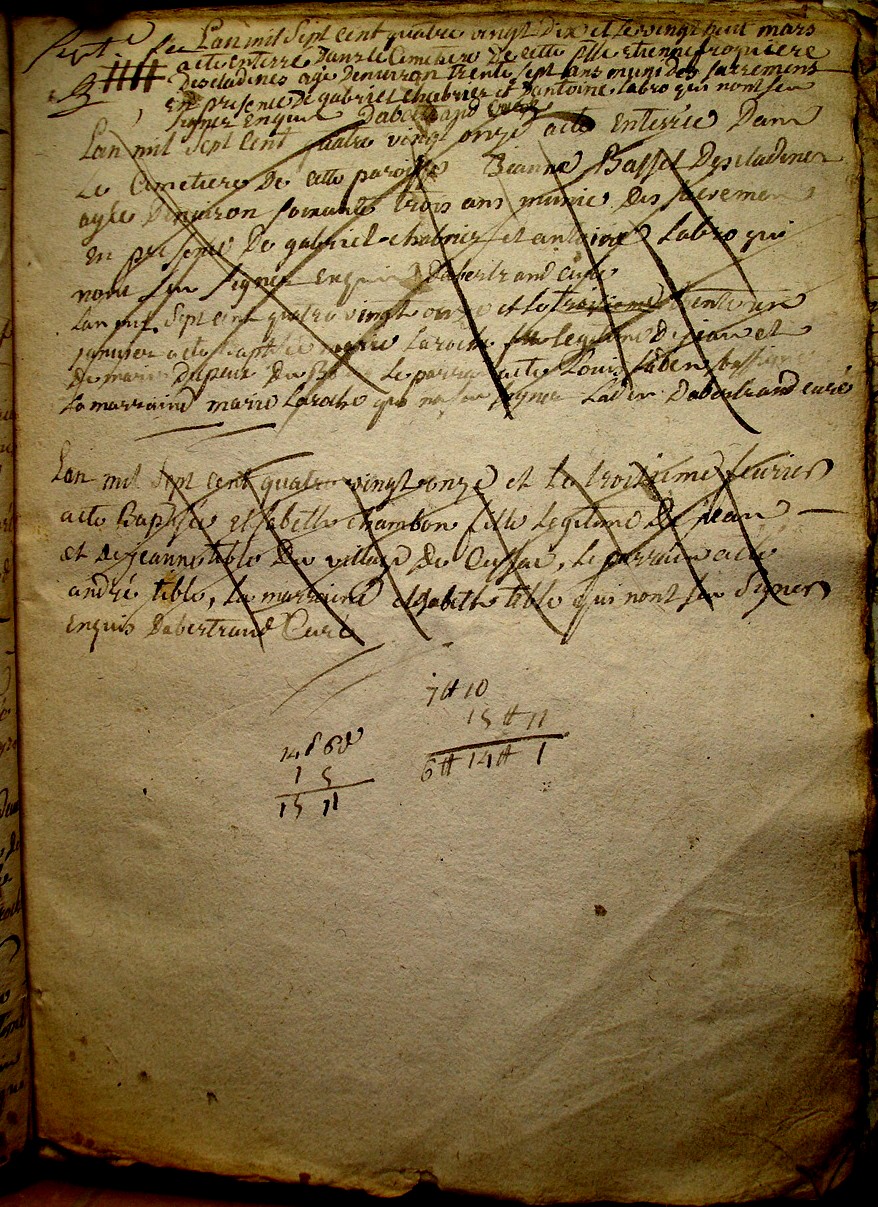 Lan mil Sept cent quatre vingt Dix et le vingt huit mars
acte enterré Dans le Cemetiere De cette plle etienne froquiere
Descladines agé Denviron trente Sept ans muni des sacremens
en presence De gabriel chabrier et Dantoine labro qui nont seu
signer enquis Dabertrand Curé
Lan mil Sept Cent quatre vingt onze acte Enterrée Dans
Le Cemetiere De cette paroisse Jeanne Bassel Descladines
agée Denviron soixante trois ans munie Des sacremens
en presence De gabriel chabrier et antoine Labro qui
nont seu signer Enquis Dabertrand Curé
Lan mil Sept cent quatre vingt onze et le troisieme trente un
janvier acte Baptisée marie Laroche fille legitime De jean et
De marie Dupeux Du Le parrain acte Louis Laden
La marraine marie Laroche qui na seu signer Laden Dabertrand curé
Lan mil Sept cent quatre vingt onze et le troisieme fevrier
acte Baptisée elisabette chambon fille Legitime De jean
et De jeanne tible Du village De Cussac, Le parrain acte
andré tible, La marraine elisabette tible qui nont seu signer
Enquis Dabertrand Curé
7 tt 10
15 tt 11
6 tt 14 tt 1
14 s 6 d
1 5
15 11